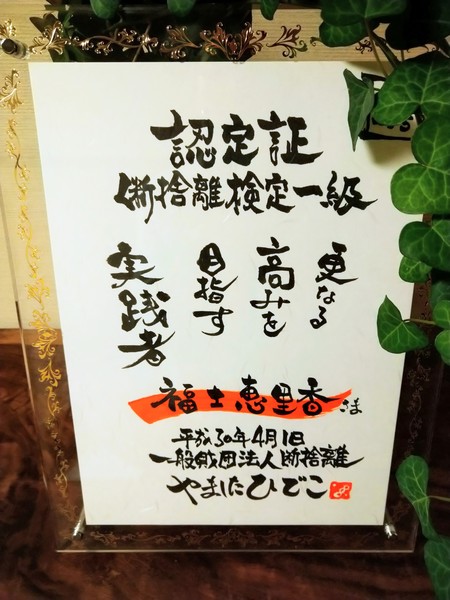 認定証
断捨離検定一級
更なる
高みを
目指す
実践者
福士恵里香さま
平成30年4月1日
一般財団法人断捨離
やましたひでこ